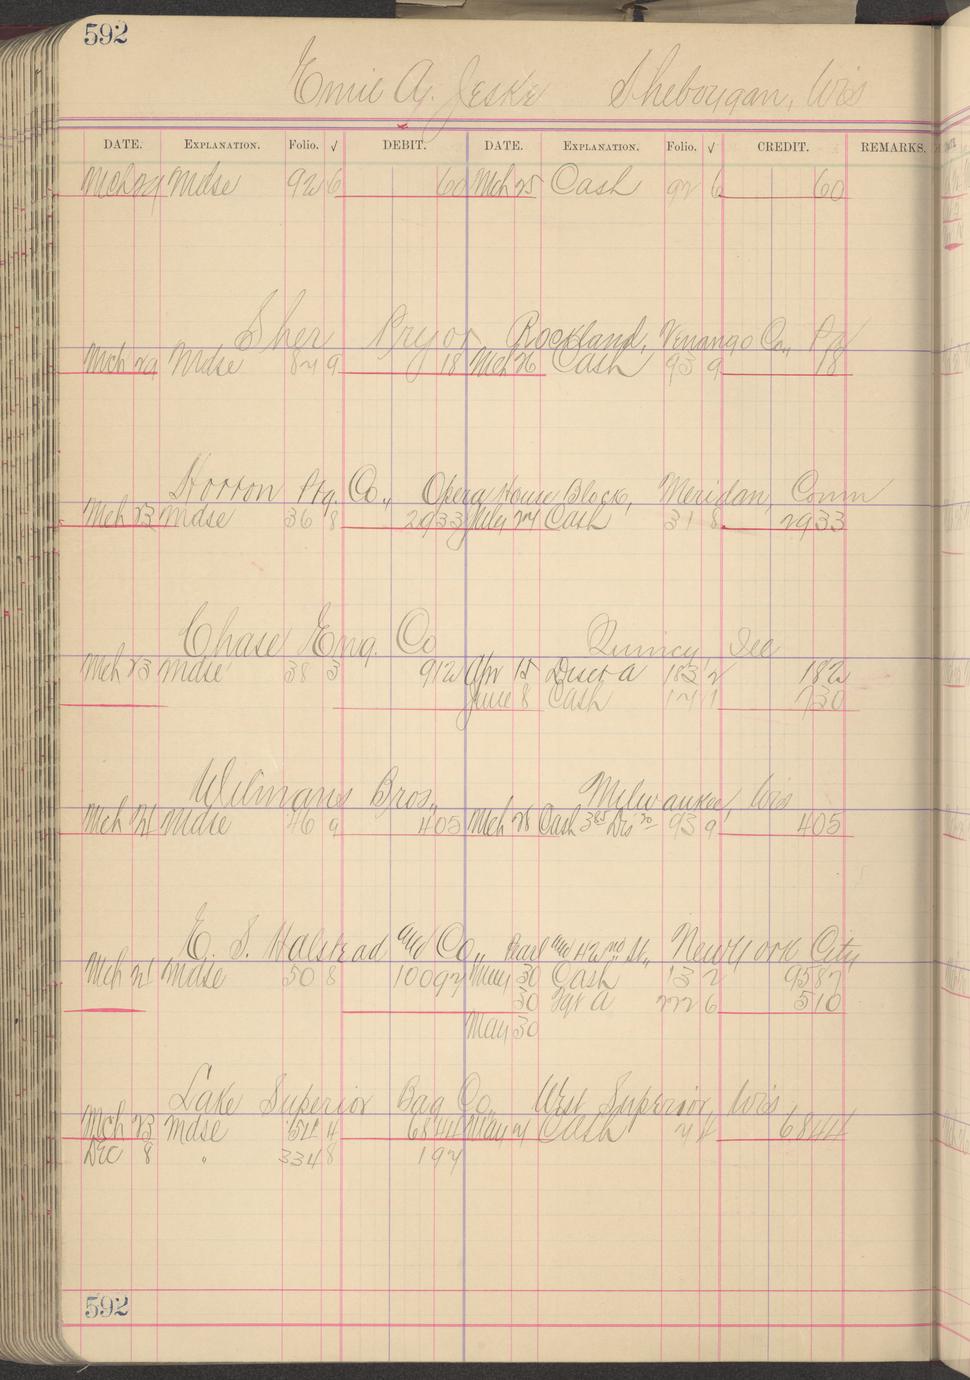 592
Emil A. Jeske Sheboygan, Wis
DATE. EXPLANATION. Folio. √ DEBIT. DATE. EXPLANATION. Folio. √ CREDIT. REMARKS.
Mch 24 Mdse 92 6 60 Mch 25 Cash 92 6 60
Sher Pryor Rockland, Venango Co., Pa
Mch 24 Mdse 84 9 18 Mch 26 Cash 93 9 18
Horton Ptg. Co., Opera House Block, Meridan, Conn
Mch 23 Mdse 36 8 2933 24 Cash 31 8 2933
Chase Eng. Co Quincy, Ill
Mch 23 Mdse 38 3 912 Apr 15 Disct a 183 2 182
June 8 Cash 14 1 730
Wilmans Bros., Milwaukee, Wis
Mch 24 Mdse 46 9 405 Mch 28 Cash 385 Dis 20 93 9 405
E. S. Halstead and Co., Pearl and 42nd St., New York City
Mch 24 Mdse 50 8 10097 May 30 Cash 13 2 9587
30 Frt a 222 6 510
May 30
Lake Superior Bag Co West Superior, Wis
Mch 23 Mdse 54 4 6844 May 4 Cash 4 4 6844
Dec 8 " 334 8 194
592